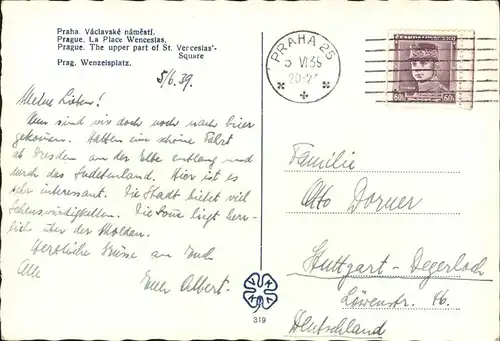 Praha. Václavské náměstí.
Prague. La Place Wenceslas.
Prague. The upper part of St. Venceslas'-
Square
Prag. Wenzelsplatz.
5/6.39.
Meine Lieben!
Nun sind wir doch noch nach hier
gekommen. Hatten eine schöne Fahrt
ab Dresden an der Elbe entlang und
durch das Sudetenland. Hier ist es
sehr interessant. Die Stadt bietet viel
Sehenswürdigkeiten. Die liegt herr-
lich über der Moldau.
Herzliche Grüsse an Euch
Alle
Euer Albert.
PRAHA 25
VI 39
20-
Familie
Otto Dorner
Stuttgart-Degerloch
Löwenstr. 86.
Deutschland
319